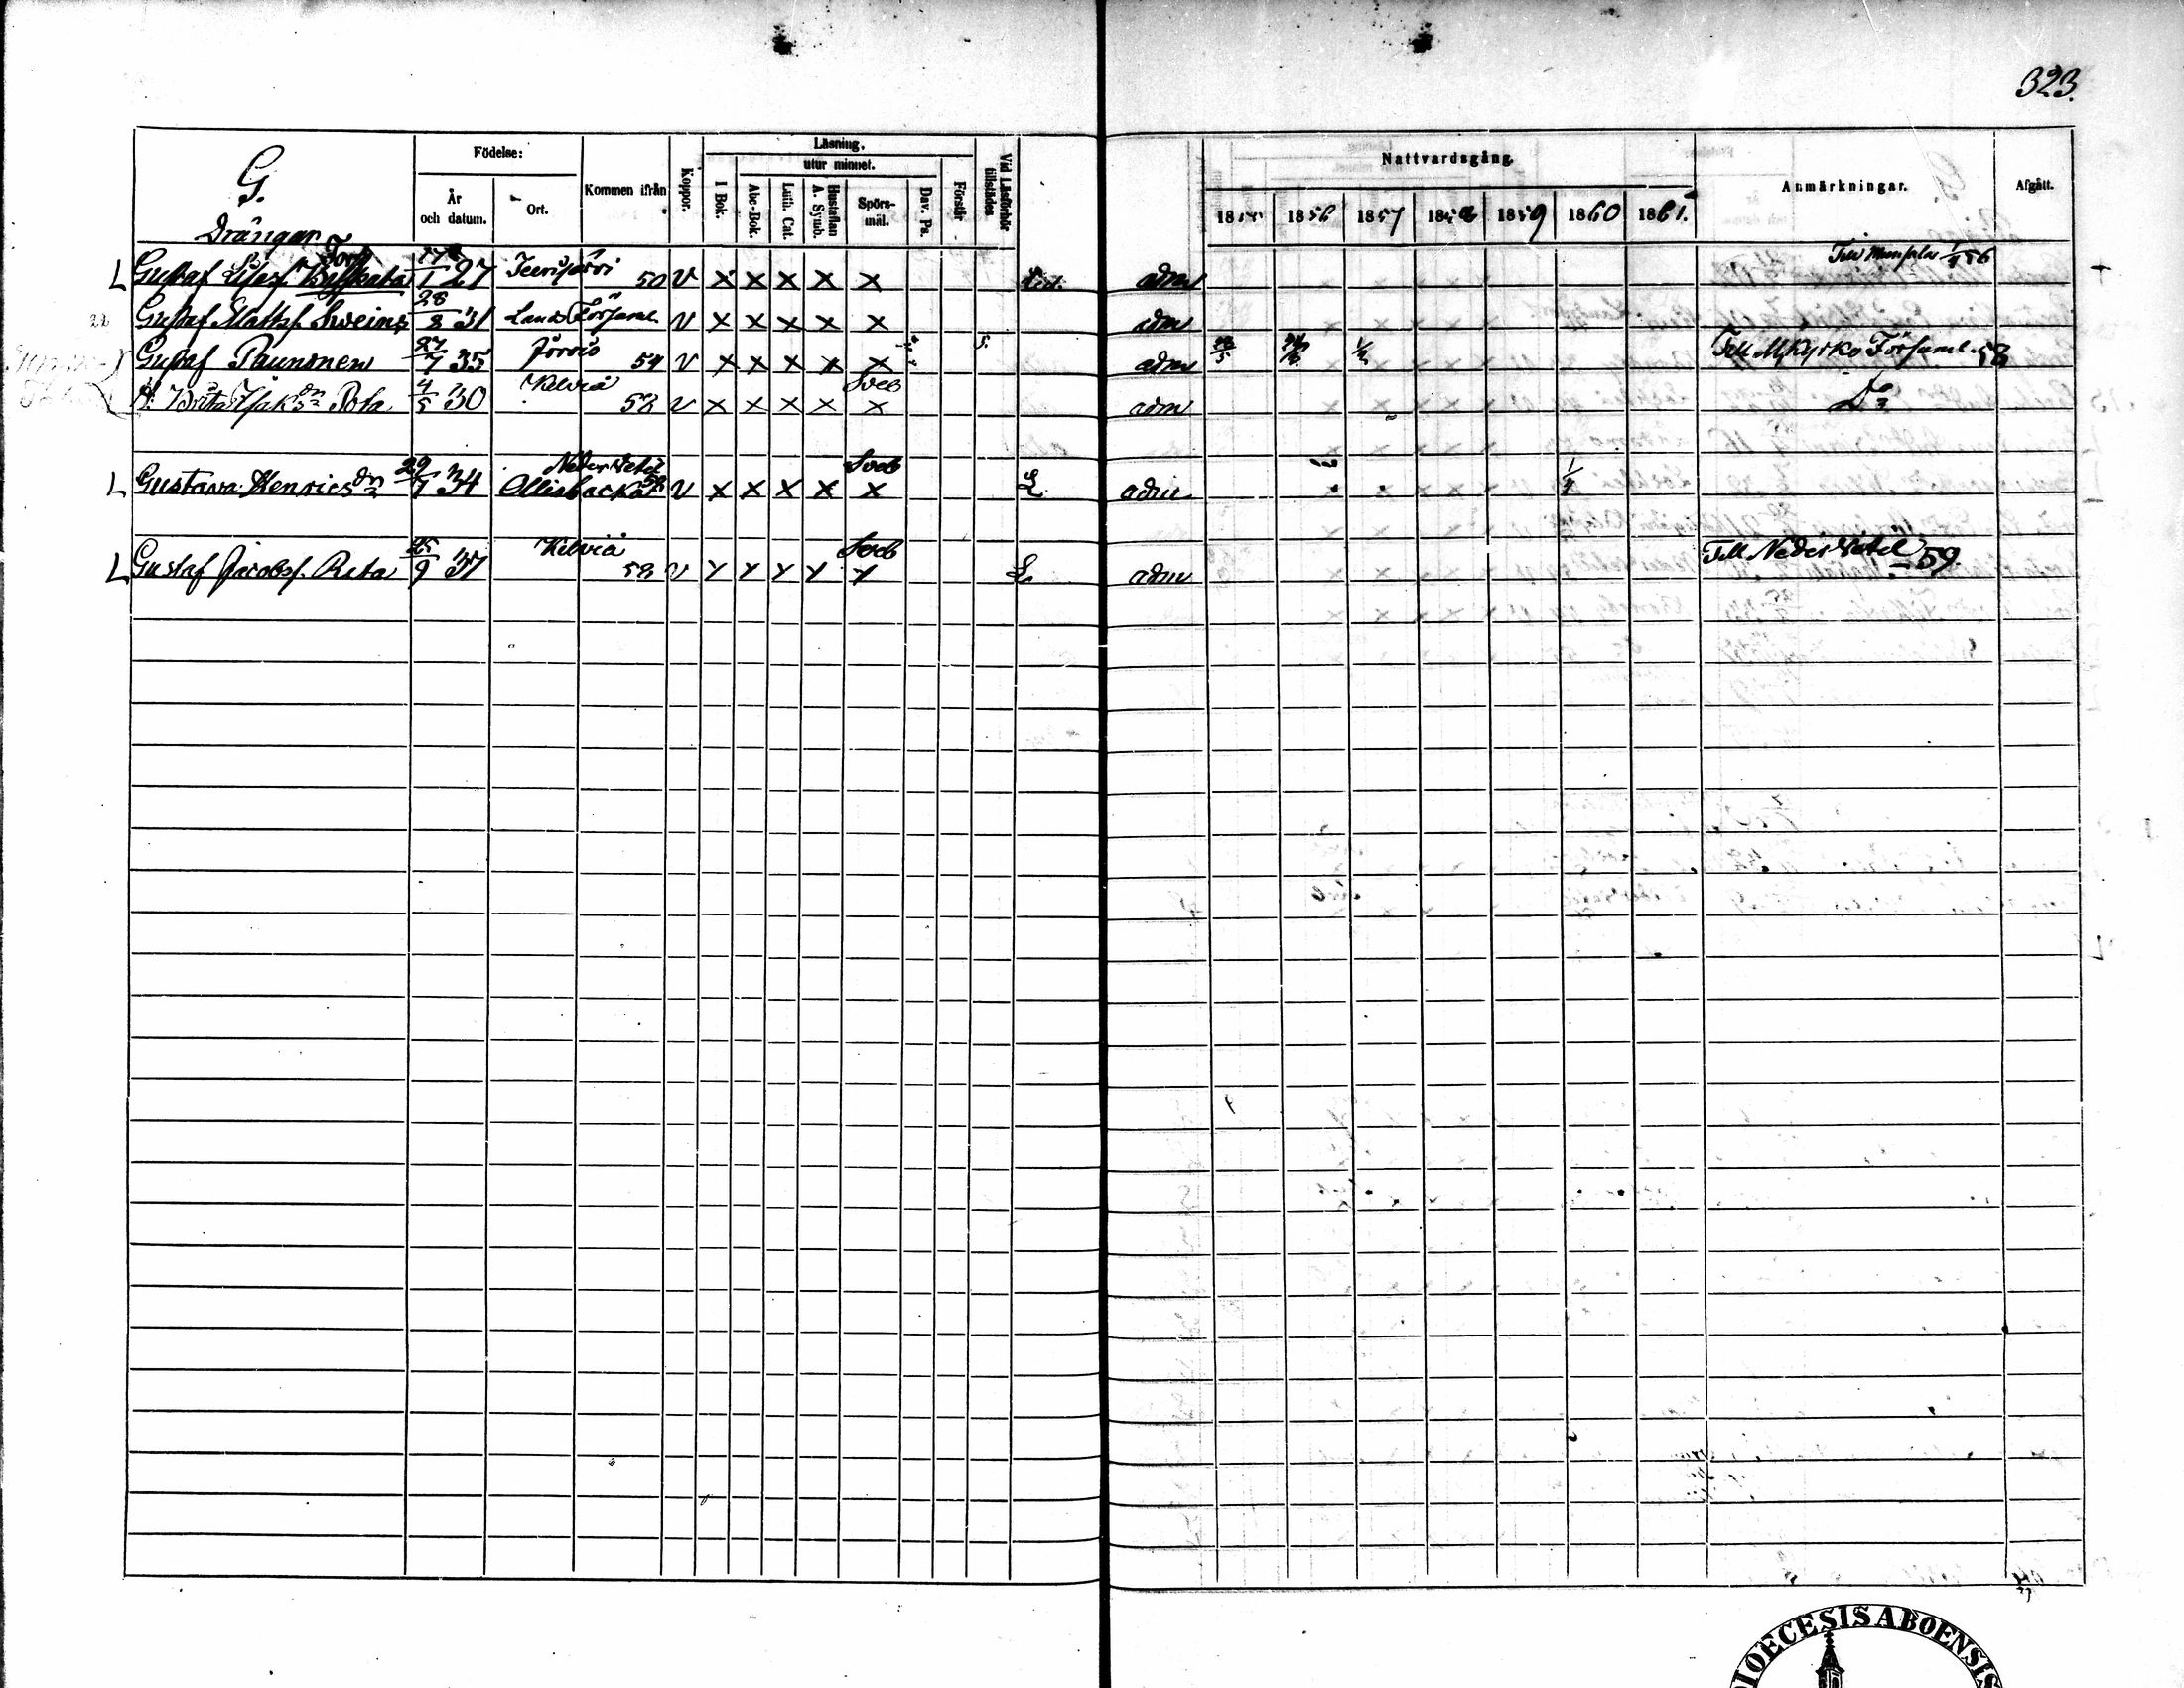 323.
G.
Drängar
Födelse:
År och datum.
Ort.
Kommen ifrån
Koppor.
Läsning.
I Bok.
utur minnet.
Abc-Bok.
Luth. Cat.
Hustaflan A. Symb.
Spörsmål.
Dav. Ps.
Förstår
Vid Läsförhör tillstädes
Nattvardsgång.
1855 1856 1857 1858 1859 1860 1861.
Anmärkningar.
Afgått.
L Gustaf Torp 1 27 Teerijärvi 50 v x x x x x adm 56
Gustaf Mattss. Sweins 28/8 31 Lands Församl. v x x x x x adm
Gustaf Paunonen 27/7 35 Jörois 54 v x x x x x 5. adm 1/2 Till Mkyrko Församl. 58
H. Brita Isaksdr Pota 4/5 30 Kelviä 52 v x x x x Sveb x adm Do
L Gustava Henricsdr 29/7 34 Neder Vetil Ollisbacka v x x x x Sveb x L. adm 1/7
L Gustaf Jacobss. Rita 25/9 37 Kelviä 58 v x x x x Sveb x L adm Till Neder Vetil 59.
DIOECESIS ABOENSIS